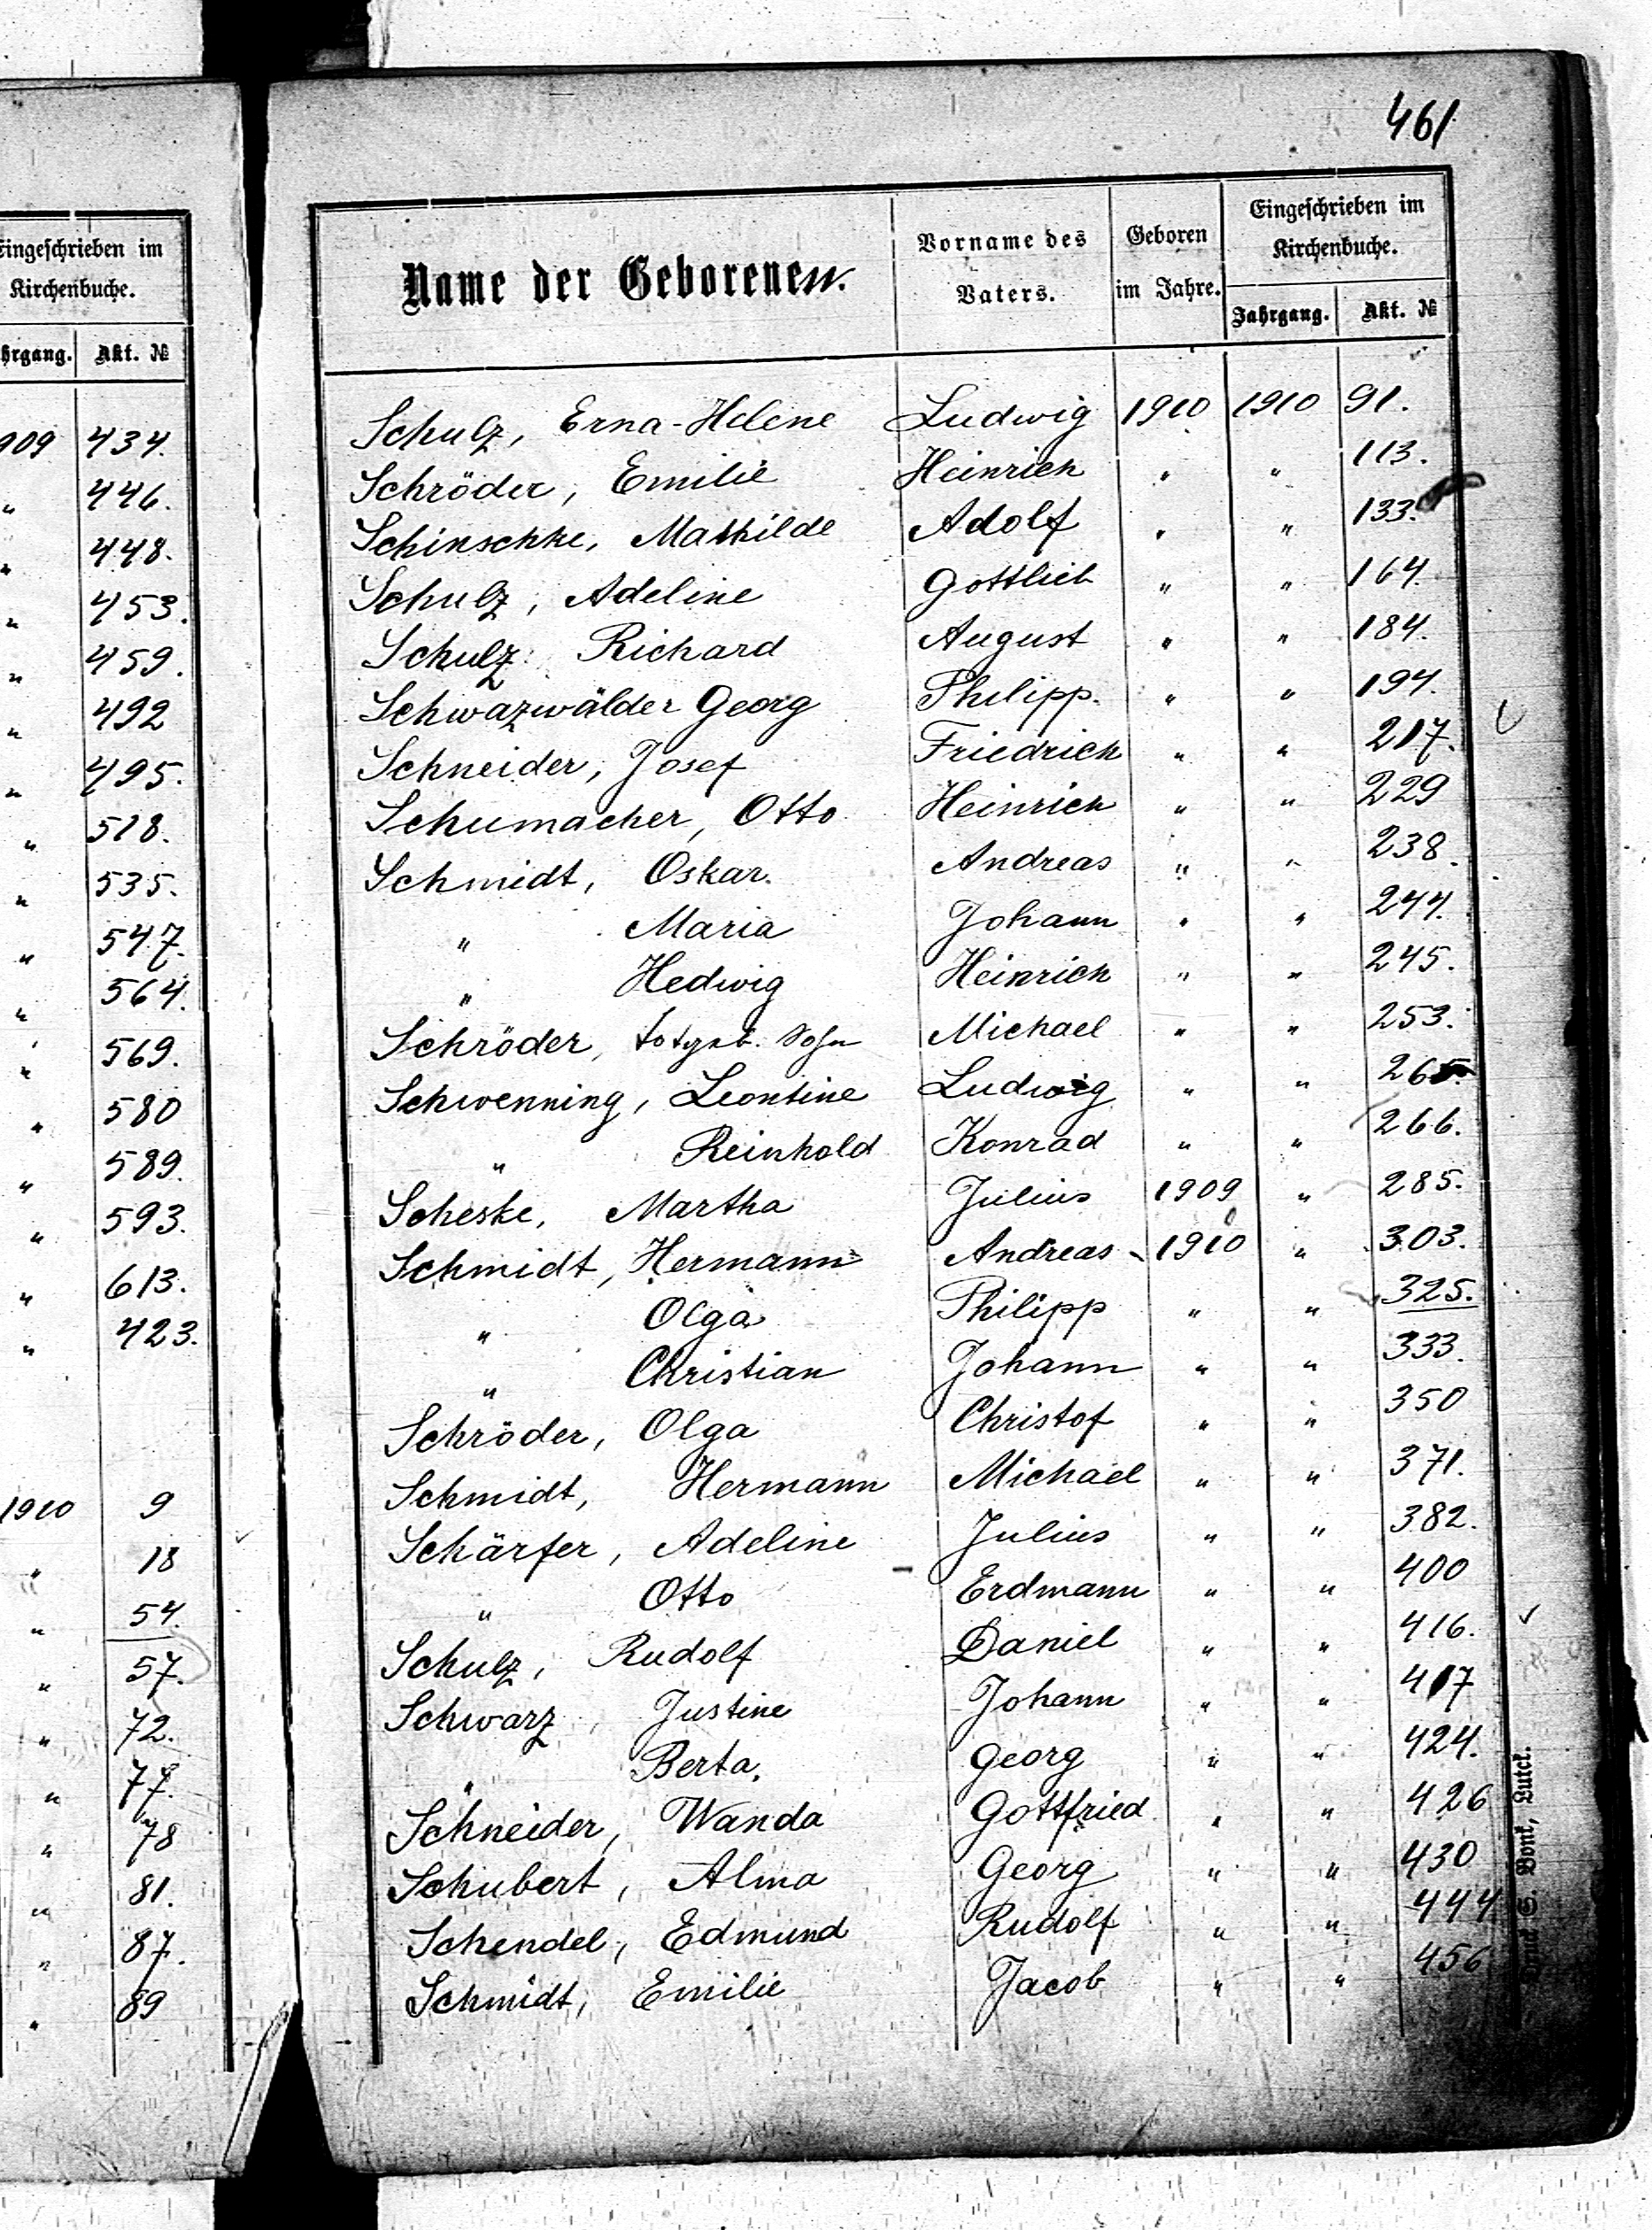 461
Eingeschrieben im
Kirchenbuche.
hrgang. Akt. №
909 434.
" 446.
" 448.
" 453.
" 459.
" 492
" 495.
" 518.
" 535.
" 547.
" 564.
" 569.
" 580
" 589.
" 593.
" 613.
" 423.
1910 9
" 18
" 54.
" 57.
" 72.
" 77.
" 78
" 81.
" 87.
" 89
Name der Geborenen. Vorname des Vaters. Geboren im Jahre. Eingeschrieben im Kirchenbuche.
Jahrgang. Akt. №
Schulz, Erna-Helene Ludwig 1910 1910 91.
Schröder, Emilie Heinrich " " 113.
Schinschke, Mathilde Adolf " " 133.
Schulz, Adeline Gottlieb " " 164.
Schulz Richard August " " 184.
Schwazwälder Georg Philipp. " " 194.
Schneider, Josef Friedrich " " 217.
Schumacher, Otto Heinrich " " 229
Schmidt, Oskar. Andreas " " 238.
" Maria Johann " " 244.
" Hedwig Heinrich " " 245.
Schröder, totgeb. Sohn Michael " " 253.
Schwenning, Leontine Ludwig " " 265.
" Reinhold Konrad " " 266.
Scheske, Martha Julius 1909 " 285.
Schmidt, Hermann Andreas 1910 " 303.
" Olga Philipp " " 325.
" Christian Johann " " 333.
Schröder, Olga Christof " " 350
Schmidt, Hermann Michael " " 371.
Schärfer, Adeline Julius " " 382.
" Otto Erdmann " " 400
Schulz, Rudolf Daniel " " 416.
Schwarz, Justine Johann " " 417
" Berta. Georg " " 424.
Schneider, Wanda Gottfried " " 426
Schubert, Alma Georg " " 430
Schendel, Edmund Rudolf " " 444
Schmidt, Emilie Jacob " " 456
Druck E. Bonk, Lutck.